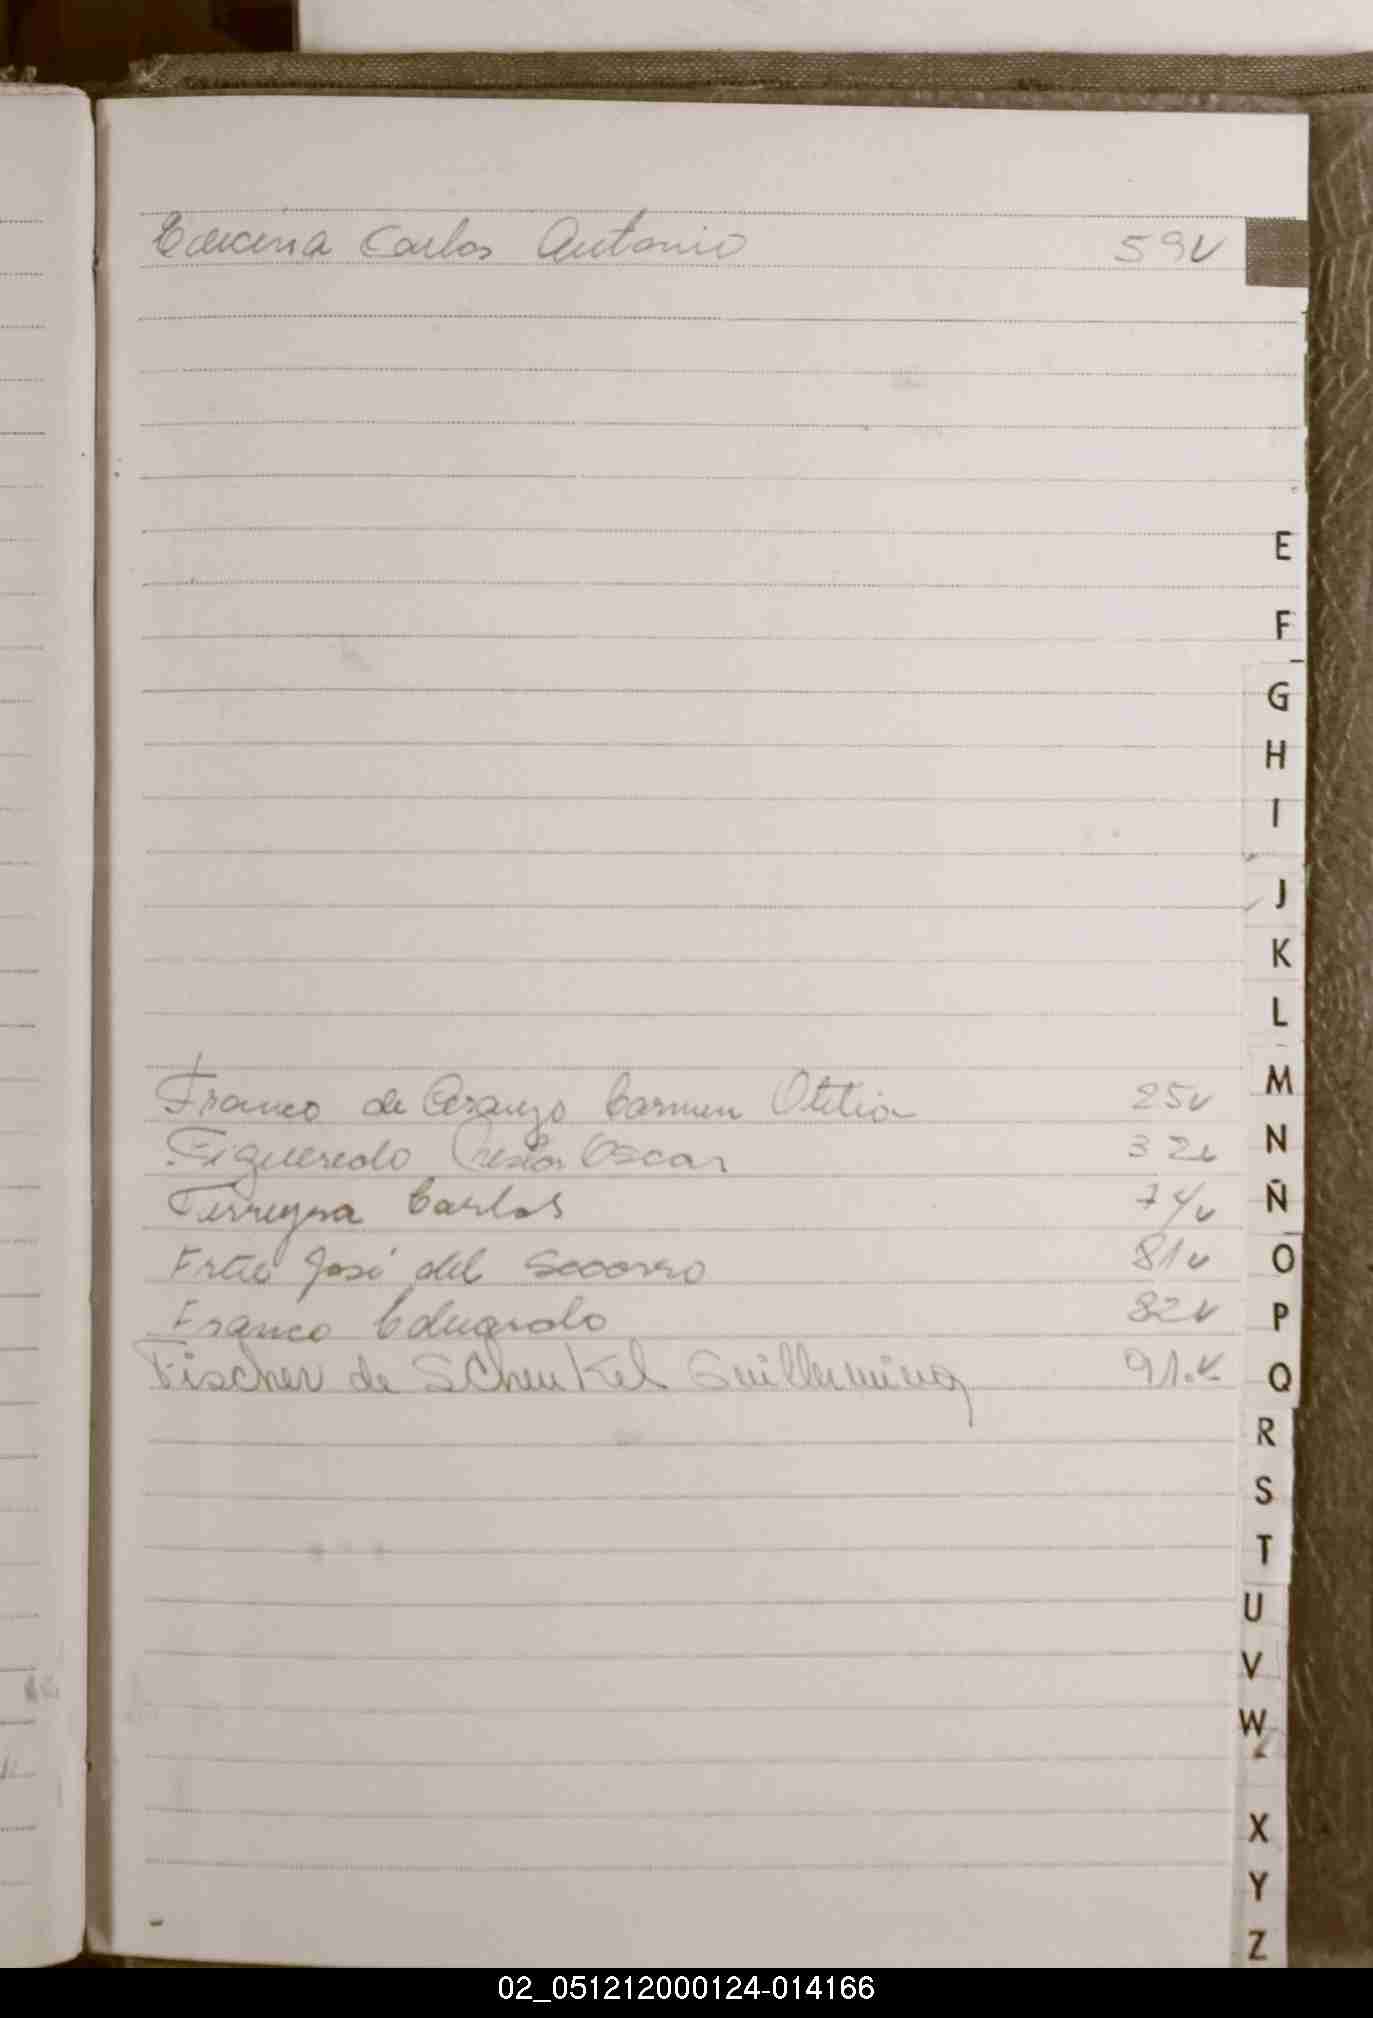 Carlos Antonio 59v
E
F
G
H
I
J
K
L
Franco de Araujo Carmen Otilia 25v
M
Figueredo Nestor Oscar 32v
N
Ferreyra Carlos 74v
Ñ
José del Socorro 81v
O
Franco Eduardo 82v
P
Fischer de SChenKel Guillermina 91.v
Q
R
S
T
U
V
W
X
Y
Z
02_051212000124-014166